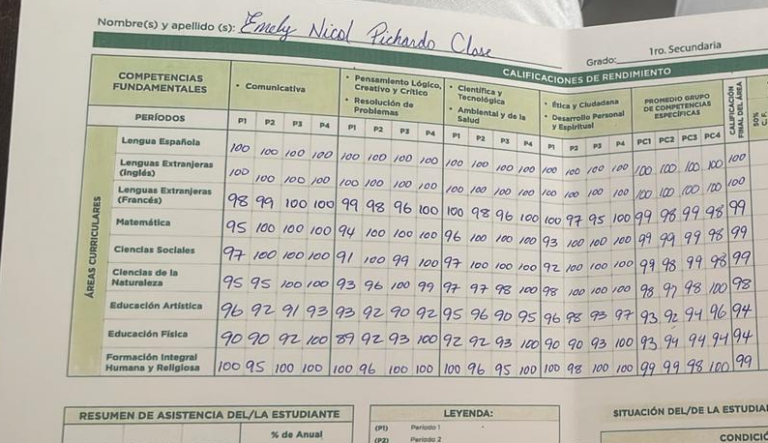 Nombre(s) y apellido (s): Emely Nicol Pichardo Clase
Grado: 1ro. Secundaria
CALIFICACIONES DE RENDIMIENTO
COMPETENCIAS FUNDAMENTALES • Comunicativa • Pensamiento Lógico, Creativo y Crítico • Resolución de Problemas • Científica y Tecnológica • Ambiental y de la Salud • Ética y Ciudadana • Desarrollo Personal y Espiritual PROMEDIO GRUPO DE COMPETENCIAS ESPECÍFICAS CALIFICACIÓN FINAL DEL ÁREA 50% C.F.
PERÍODOS P1 P2 P3 P4 P1 P2 P3 P4 P1 P2 P3 P4 P1 P2 P3 P4 PC1 PC2 PC3 PC4
ÁREAS CURRICULARES
Lengua Española 100 100 100 100 100 100 100 100 100 100 100 100 100 100 100 100 100 100 100 100 100
Lenguas Extranjeras (Inglés) 100 100 100 100 100 100 100 100 100 100 100 100 100 100 100 100 100 100 100 100 100
Lenguas Extranjeras (Francés) 98 99 100 100 99 98 96 100 100 98 96 100 100 97 95 100 99 98 99 98 99
Matemática 95 100 100 100 94 100 100 100 96 100 100 100 93 100 100 100 99 99 99 98 99
Ciencias Sociales 97 100 100 100 91 100 99 100 97 100 100 100 92 100 100 100 99 98 99 98 99
Ciencias de la Naturaleza 95 95 100 100 93 96 100 99 97 97 98 100 98 100 100 100 98 97 98 100 98
Educación Artística 96 92 91 93 93 92 90 92 95 96 90 95 96 98 93 97 93 92 94 96 94
Educación Física 90 90 92 100 89 92 93 100 92 92 93 100 90 90 93 100 93 94 94 94 94
Formación Integral Humana y Religiosa 100 95 100 100 100 96 100 100 100 96 95 100 100 98 100 100 99 99 98 100 99
RESUMEN DE ASISTENCIA DEL/LA ESTUDIANTE
% de Anual
LEYENDA:
(P1) Período 1
(P2) Período 2
SITUACIÓN DEL/DE LA ESTUDIA
CONDICIÓ